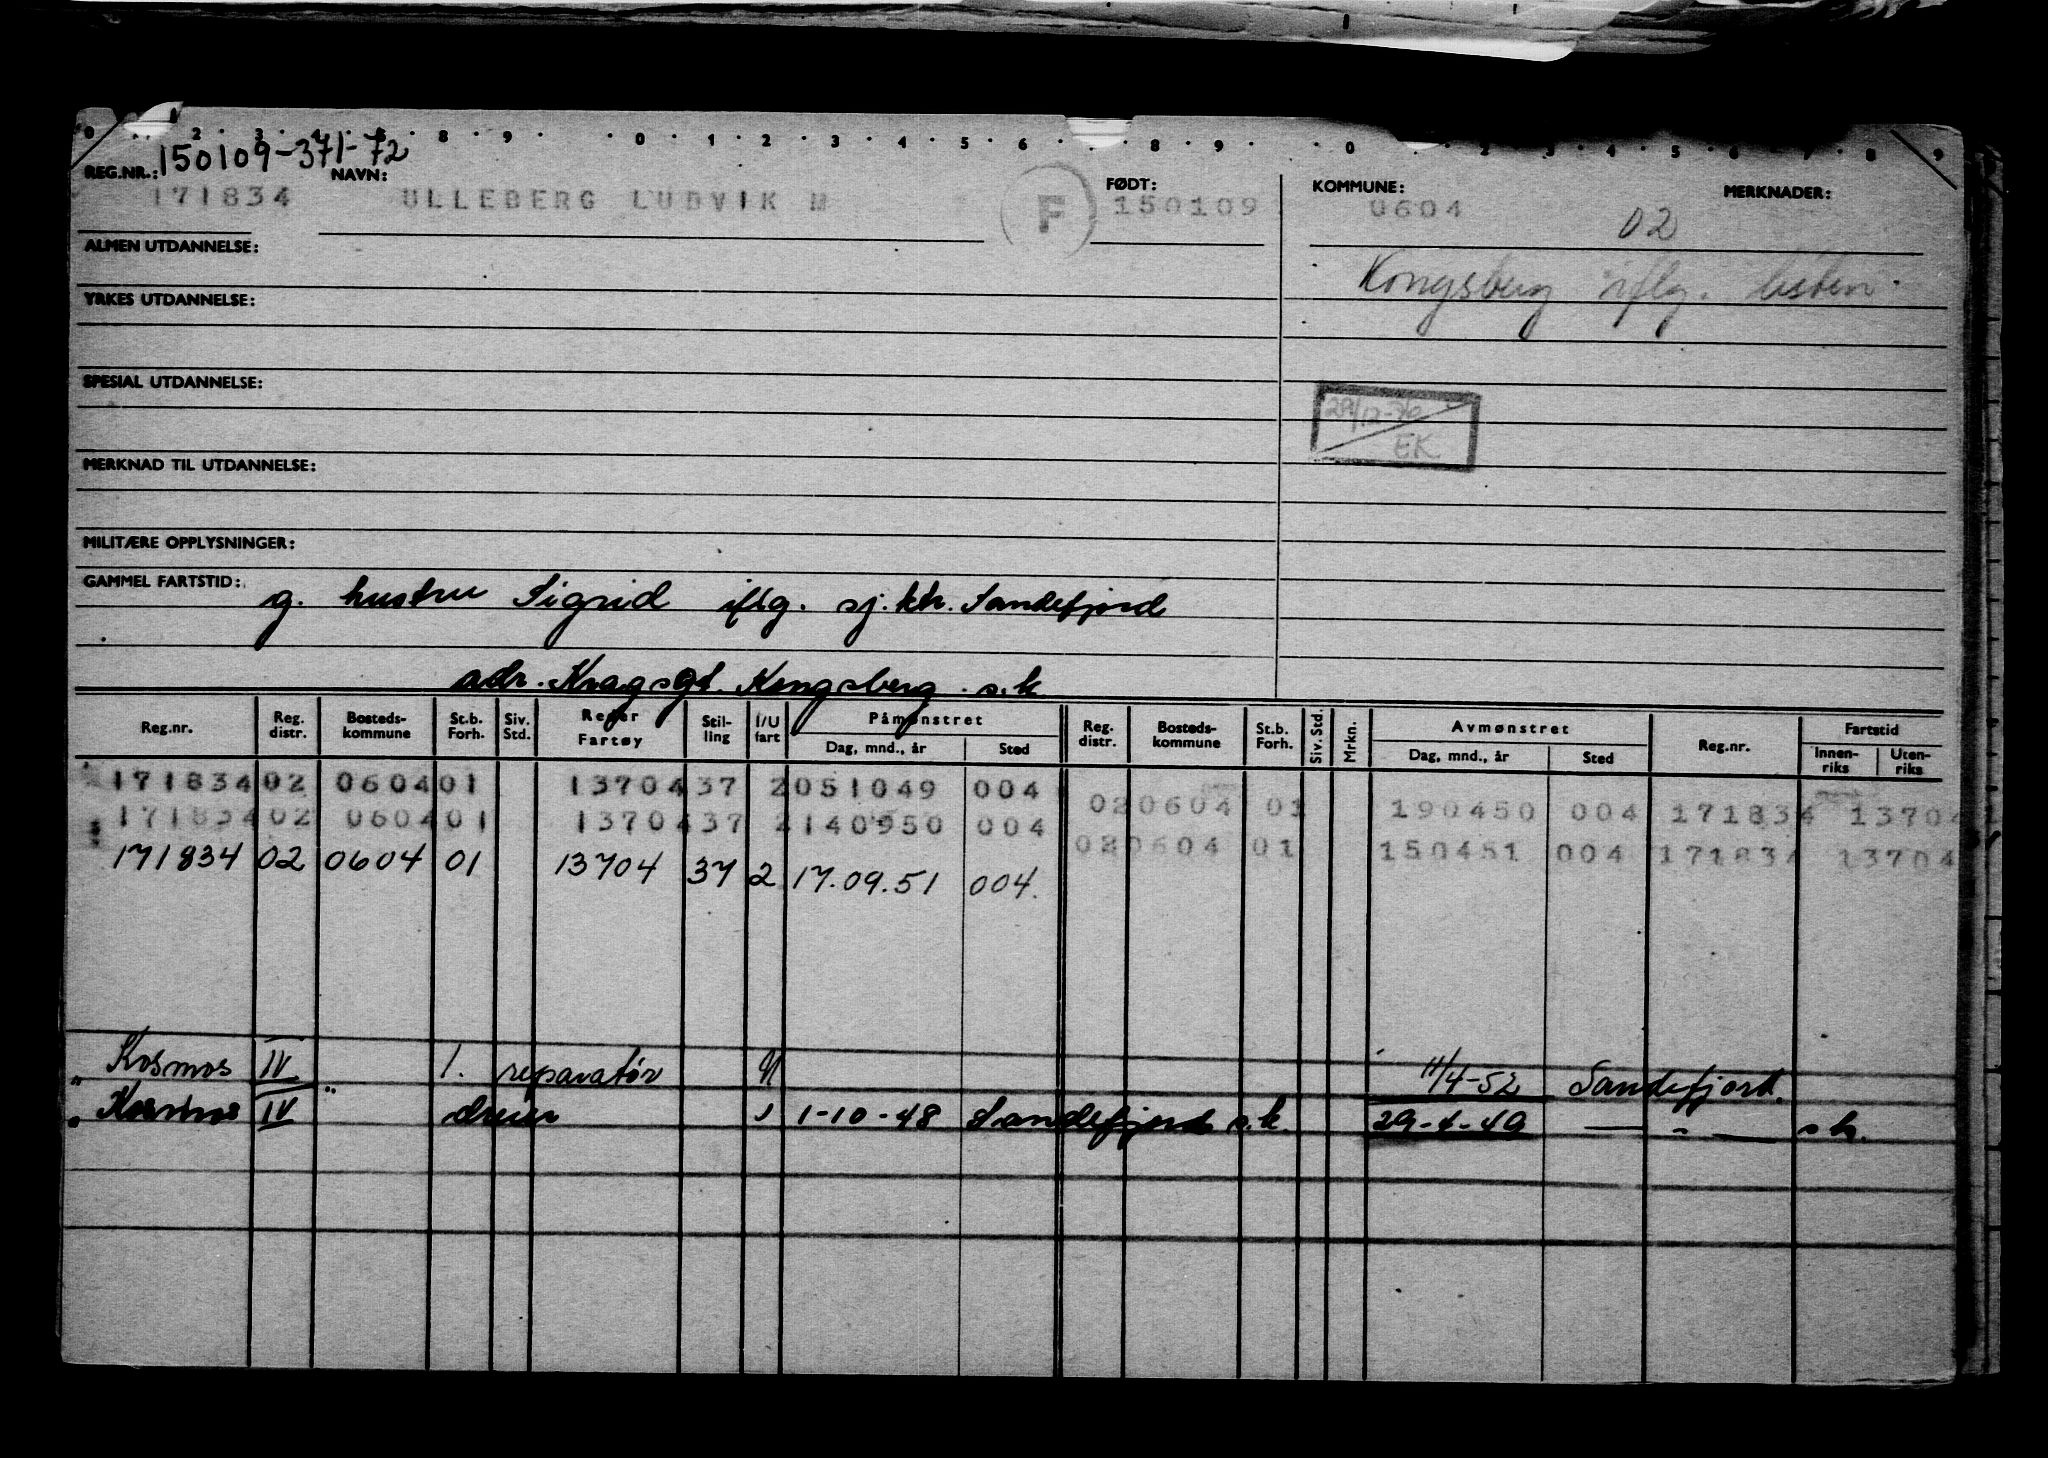 0 2 3 4 8 9 0 1 2 3 4 5 6 8 9 0 2 3 4 5 6 7 8 9
150109-371-72
REG.NR.: NAVN: FØDT: KOMMUNE: MERKNADER:
171834 ULLEBERG LUDVIK M F 150109 0604
02
ALMEN UTDANNELSE:
Kongsberg iflg. listen.
YRKES UTDANNELSE:
SPESIAL UTDANNELSE:
29/12-76
EK
MERKNAD TIL UTDANNELSE:
MILITÆRE OPPLYSNINGER:
GAMMEL FARTSTID: g. hustru Sigrid iflg. sj.ktr. Sandefjord
adr. Kragsgt. Kongsberg s.k
Reg.nr. Reg. distr. Bosteds-kommune St.b. Forh. Siv. Std. Reder Fartøy Stil-ling I/U fart Påmønstret Dag, mnd., år Sted Reg. distr. Bosteds-kommune St.b. Forh. Siv. Std. Mrkn. Avmønstret Dag, mnd., år Sted Reg.nr. Fartstid Innen-riks Uten-riks
171834 02 0604 01 13704 37 2 051049 004 02 0604 01 190450 004 171834 13704
171834 02 0604 01 13704 37 2 140950 004 02 0604 01 150451 004 171834 13704
171834 02 0604 01 13704 37 2 17.09.51 004.
" Kosmos IV " 1. reparatør U 11/4-52 Sandefjord.
" Kosmos IV dreier 1-10-48 Sandefjord s.k. 29-4-49 — " — s k.